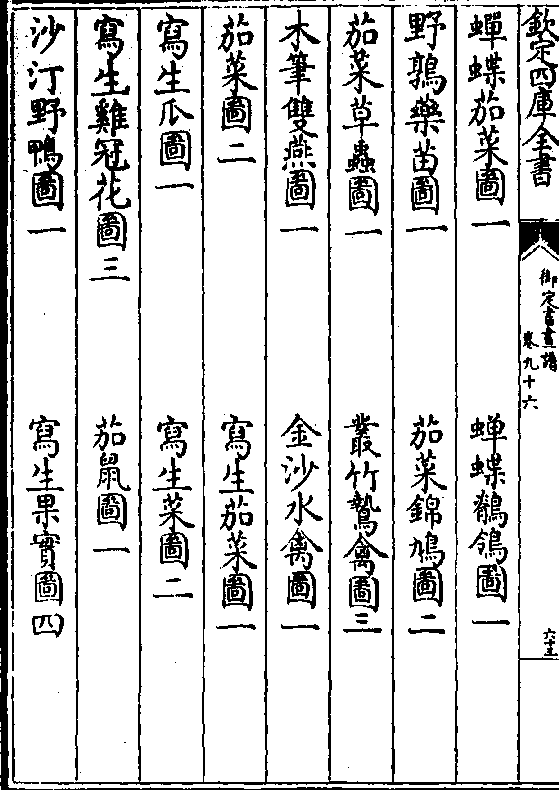 欽定四庫全書
御定書畫譜
卷九十六
六十五
蟬蝶茄菜圖一 蟬蝶鶺鴒圖一
野鶉藥苗圖一 茄菜錦鳩圖二
茄菜草蟲圖一 叢竹鷙禽圖三
木筆雙燕圖一 金沙水禽圖一
茄菜圖二 寫生茄菜圖一
寫生瓜圖一 寫生菜圖二
寫生雞冠花圖三 茄鼠圖一
沙汀野鴨圖一 寫生果實圖四